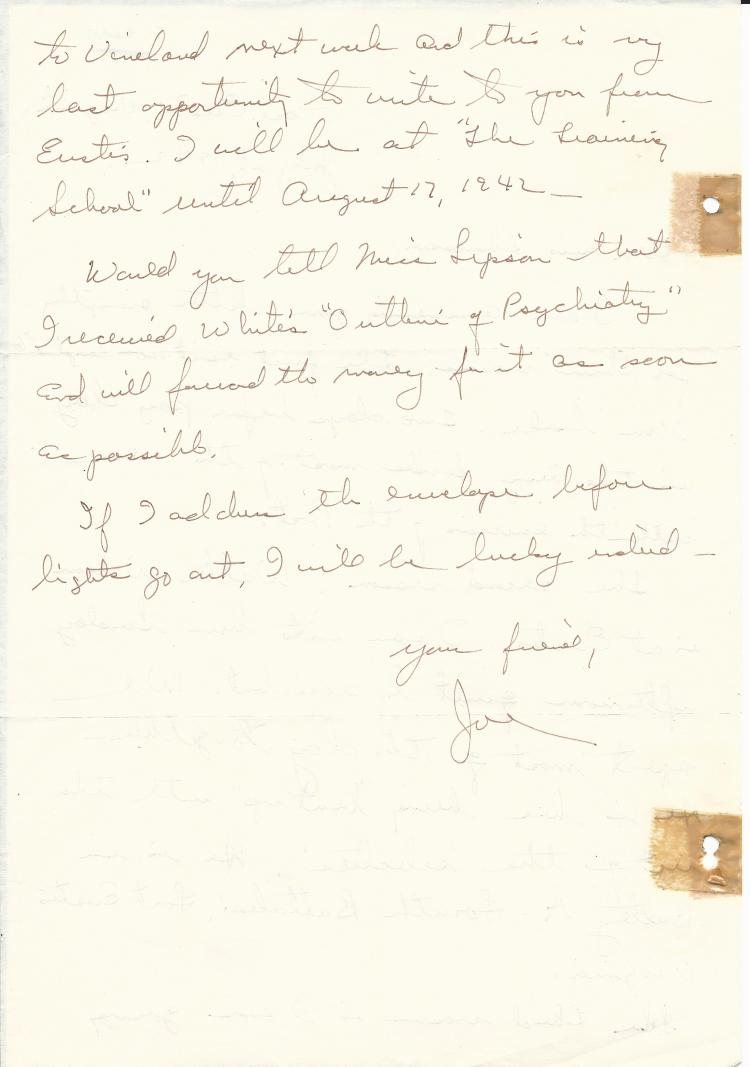 to Vineland next week and this is my
last opportunity to write to you from
Eustis. I will be at "The Training
School" until August 17, 1942 —
Would you tell Miss Lipson that
I received White's "Outline of Psychiatry"
and will forward the money for it as soon
as possible.
If I address the envelope before
lights go out, I will be lucky indeed —
your friend,
Joe